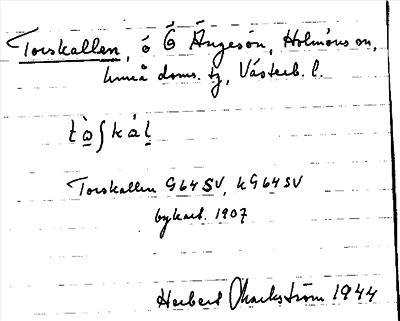 Torskallen, ö Ö Ängesön, Holmöns sn,
Umeå doms. tg, Västerb. l.
tò̱ʃkáḻ
Torskallen G64SV, kG64SV
bykart. 1907
Herbert Markström 1944